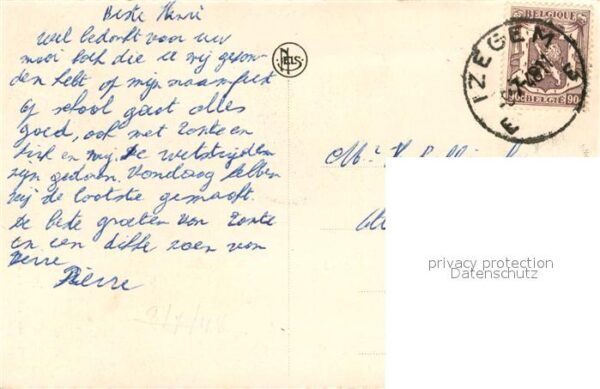 Beste Henri
Wel bedankt voor uw
mooi boek die u mij gezon-
den hebt of mijn naamfeest
Op school gaat alles
goed, ook met Tante en
en mij. De wetstrijden
zijn gedaan. Vandaag hebben
wij de laatste gemaakt.
De beste groeten van Tante
en een dikke zoen van
Pierre
NELS
BELGIQUE
90c BELGIË 90
IZEGEM
privacy protection
Datenschutz